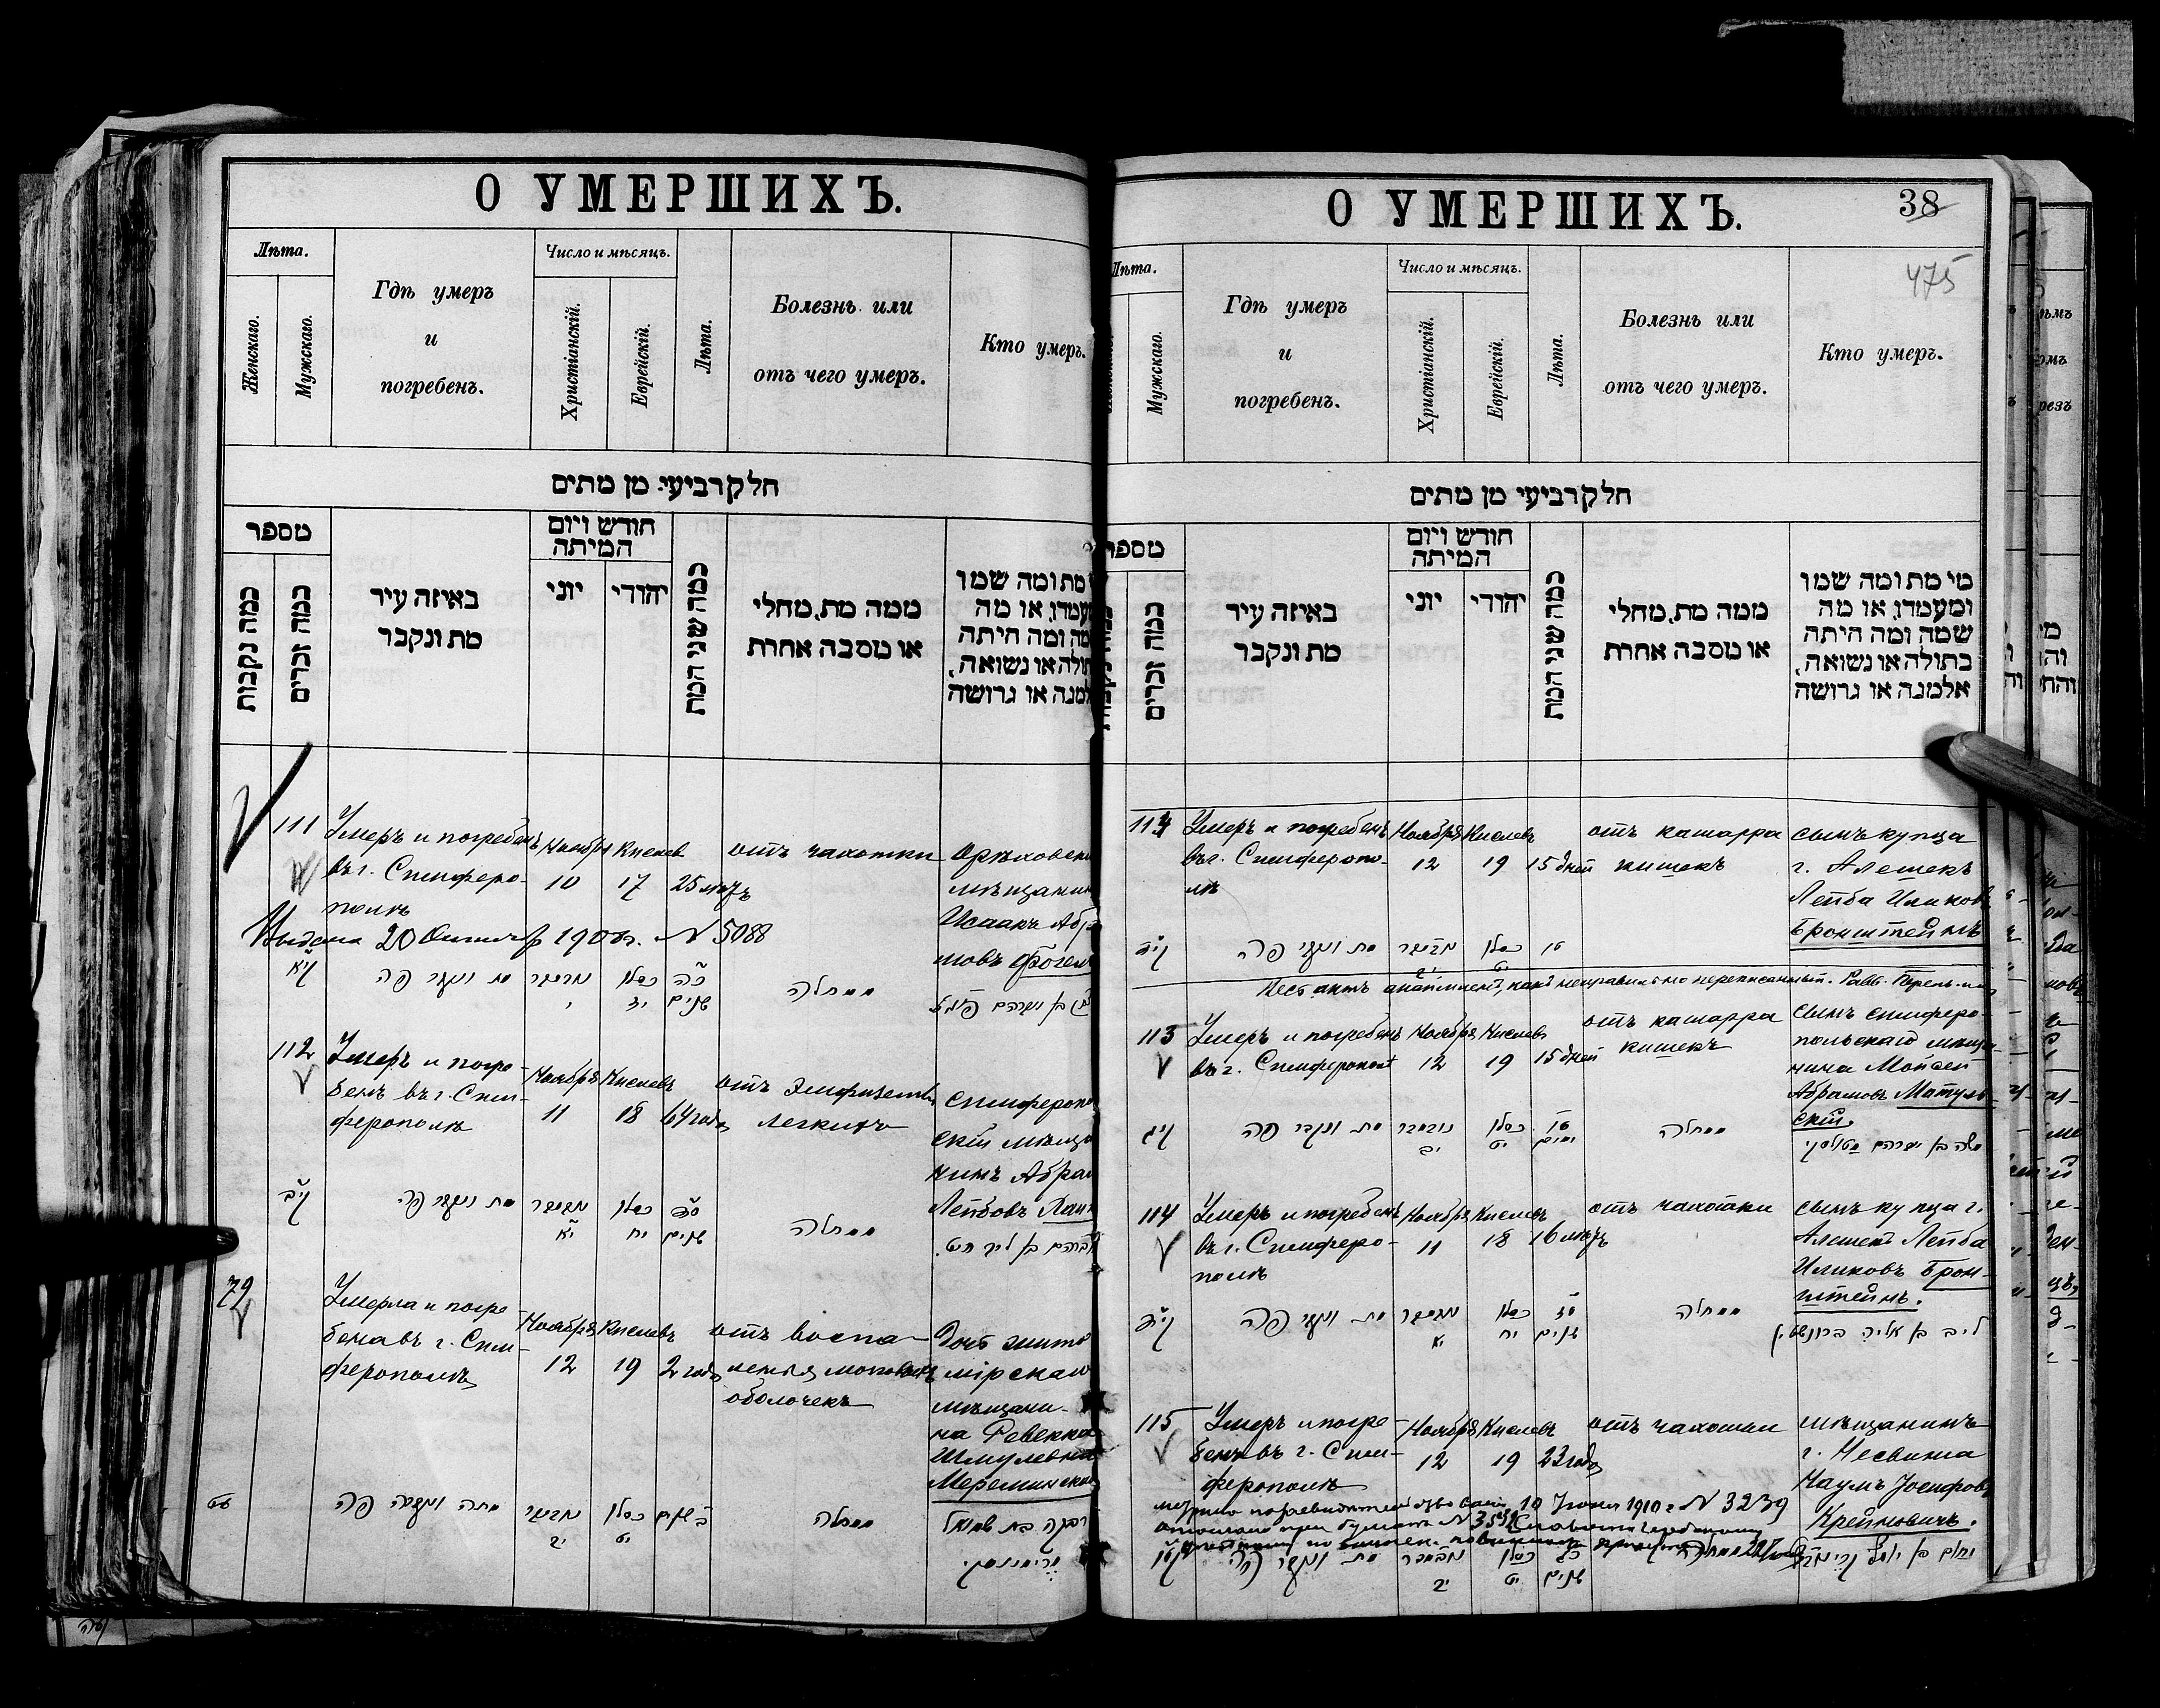 О УМЕРШИХЪ.
Лѣта.
Женскаго.
Мужскаго.
Гдѣ умеръ
и
погребенъ.
Число и мѣсяцъ.
Христіанскій.
Еврейскій.
Лѣта.
Болезнь или
отъ чего умеръ.
Кто умеръ.
חלק רביעי מן מתים
מספר
כמה נקבות
כמה זכרים
באיזה עיר
מת ונקבר
חודש ויום
המיתה
יוני
יהודי
כמה שני המת
ממה מת, מחלי
או מסבה אחרת
מת ומה שמו
עמדו, או מה
מה ומה היתה
תולה או נשואה,
מנה או גרושה
111
Умеръ и погребенъ
въ г. Симферо-
полѣ
Ноября
10
Кислев
17
25 лѣтъ
отъ чахотки
Орѣховскі
мѣщанин
Исаакъ Абр
мовъ Фогел
Выдана 20 190 г. N 5088
קיא
מת ונקבר פה
כסלו
יז
כה
שנים
ממחלה
112
Умеръ и погре-
бенъ въ г. Сим-
ферополѣ
Ноября
11
Кислевъ
18
64 года
отъ Эмфиземы
легкихъ
Симферопо
скій мѣща
нинъ Абрам
Лейбовъ
קיב
מת ונקבר פה
יא
כסלו
יח
סד
שנים
ממחלה
אברהם בן ליב
72
Умерла и погре-
бена въ г. Сим-
ферополѣ
Ноября
12
Кислевъ
19
2 года
отъ воспа-
ленія мозговыхъ
оболочекъ
Дочь жито
мірскаго
мѣщани-
на Ревекка
Шмулевна
עב
מתה ונקברה פה
יב
כסלו
יט
ב שנים
ממחלה
רבקה בת שמואל
О УМЕРШИХЪ.
38
475
Лѣта.
Мужскаго.
Гдѣ умеръ
и
погребенъ.
Число и мѣсяцъ.
Христіанскій.
Еврейскій.
Лѣта.
Болезнь или
отъ чего умеръ.
Кто умеръ.
חלק רביעי מן מתים
מספר
כמה זכרים
באיזה עיר
מת ונקבר
חודש ויום
המיתה
יוני
יהודי
כמה שני המת
ממה מת, מחלי
או מסבה אחרת
מי מת ומה שמו
ומעמדו, או מה
שמה ומה היתה
בתולה או נשואה,
אלמנה או גרושה
Умеръ и погребенъ
въ г. Симферопо-
лѣ
Ноября
12
Кислевъ
19
15 дней
отъ катарра
кишекъ
сынъ купца
г. Алешекъ
Лейба Иликовъ
Бронштейнъ
מת ונקבר פה
כסלו
יט
טו
Сей актъ какъ неправильно переписанный. Равв.
113
Умеръ и погребенъ
въ г. Симферополѣ
Ноября
12
Кислевъ
19
15 дней
отъ катарра
кишекъ
сынъ симферо-
польскаго мѣща-
нина Мойсей
Абрамовъ Матуль-
скій.
קיג
מת ונקבר פה
נובמבר
יב
כסלו
יט
טו
ימים
ממחלה
משה בן אברהם מטולסקי
114
Умеръ и погребенъ
въ г. Симферо-
полѣ
Ноября
11
Кислевъ
18
16 лѣтъ
отъ чахотки
сынъ купца г.
Алешекъ Лейба
Иликовъ Брон-
штейнъ.
קיד
מת ונקבר פה
יא
כסלו
יח
שנים
ממחלה
ליב בן אליה ברונשטין
115
Умеръ и погре-
бенъ въ г. Сим-
ферополѣ
Ноября
12
Кислевъ
19
23 года
отъ чахотки
мѣщанинъ
г. Несвижа
Наумъ Іосифовъ
Крейновичъ.
10 Іюня 1910 г. N 3239
מת ונקבר פה
יב
כסלו
יט
כג
שנים
נחום בן יוסף